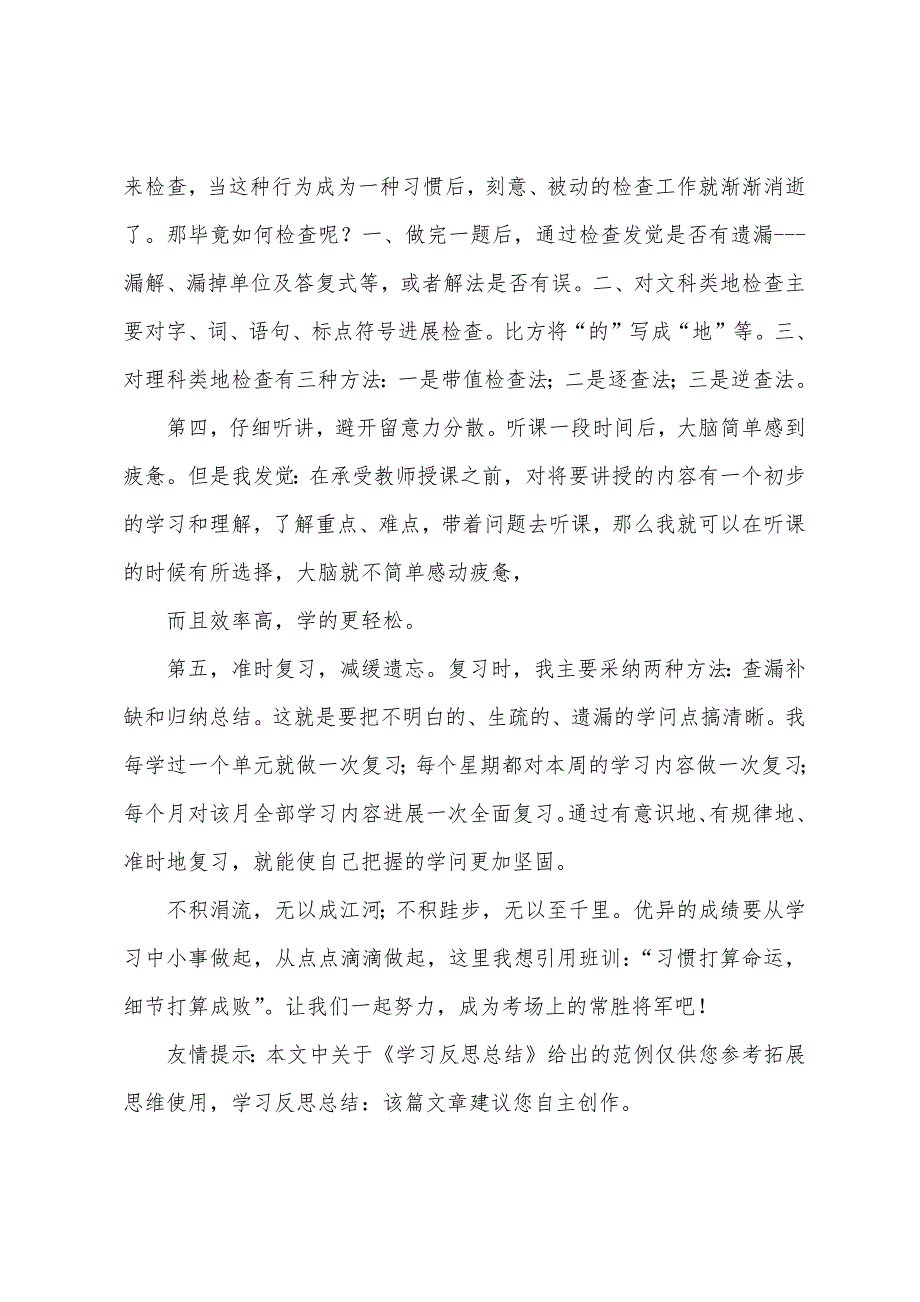 来检查，当这种行为成为一种习惯后，刻意、被动的检查工作就渐渐消逝
了。那毕竟如何检查呢？一、做完一题后，通过检查发觉是否有遗漏---
漏解、漏掉单位及答复式等，或者解法是否有误。二、对文科类地检查主
要对字、词、语句、标点符号进展检查。比方将“的”写成“地”等。三、
对理科类地检查有三种方法：一是带值检查法；二是逐查法；三是逆查法。
第四，仔细听讲，避开留意力分散。听课一段时间后，大脑简单感到
疲惫。但是我发觉：在承受教师授课之前，对将要讲授的内容有一个初步
的学习和理解，了解重点、难点，带着问题去听课，那么我就可以在听课
的时候有所选择，大脑就不简单感动疲惫，
而且效率高，学的更轻松。
第五，准时复习，减缓遗忘。复习时，我主要采纳两种方法：查漏补
缺和归纳总结。这就是要把不明白的、生疏的、遗漏的学问点搞清晰。我
每学过一个单元就做一次复习；每个星期都对本周的学习内容做一次复习；
每个月对该月全部学习内容进展一次全面复习。通过有意识地、有规律地、
准时地复习，就能使自己把握的学问更加坚固。
不积涓流，无以成江河；不积跬步，无以至千里。优异的成绩要从学
习中小事做起，从点点滴滴做起，这里我想引用班训：“习惯打算命运，
细节打算成败”。让我们一起努力，成为考场上的常胜将军吧！
友情提示：本文中关于《学习反思总结》给出的范例仅供您参考拓展
思维使用，学习反思总结：该篇文章建议您自主创作。